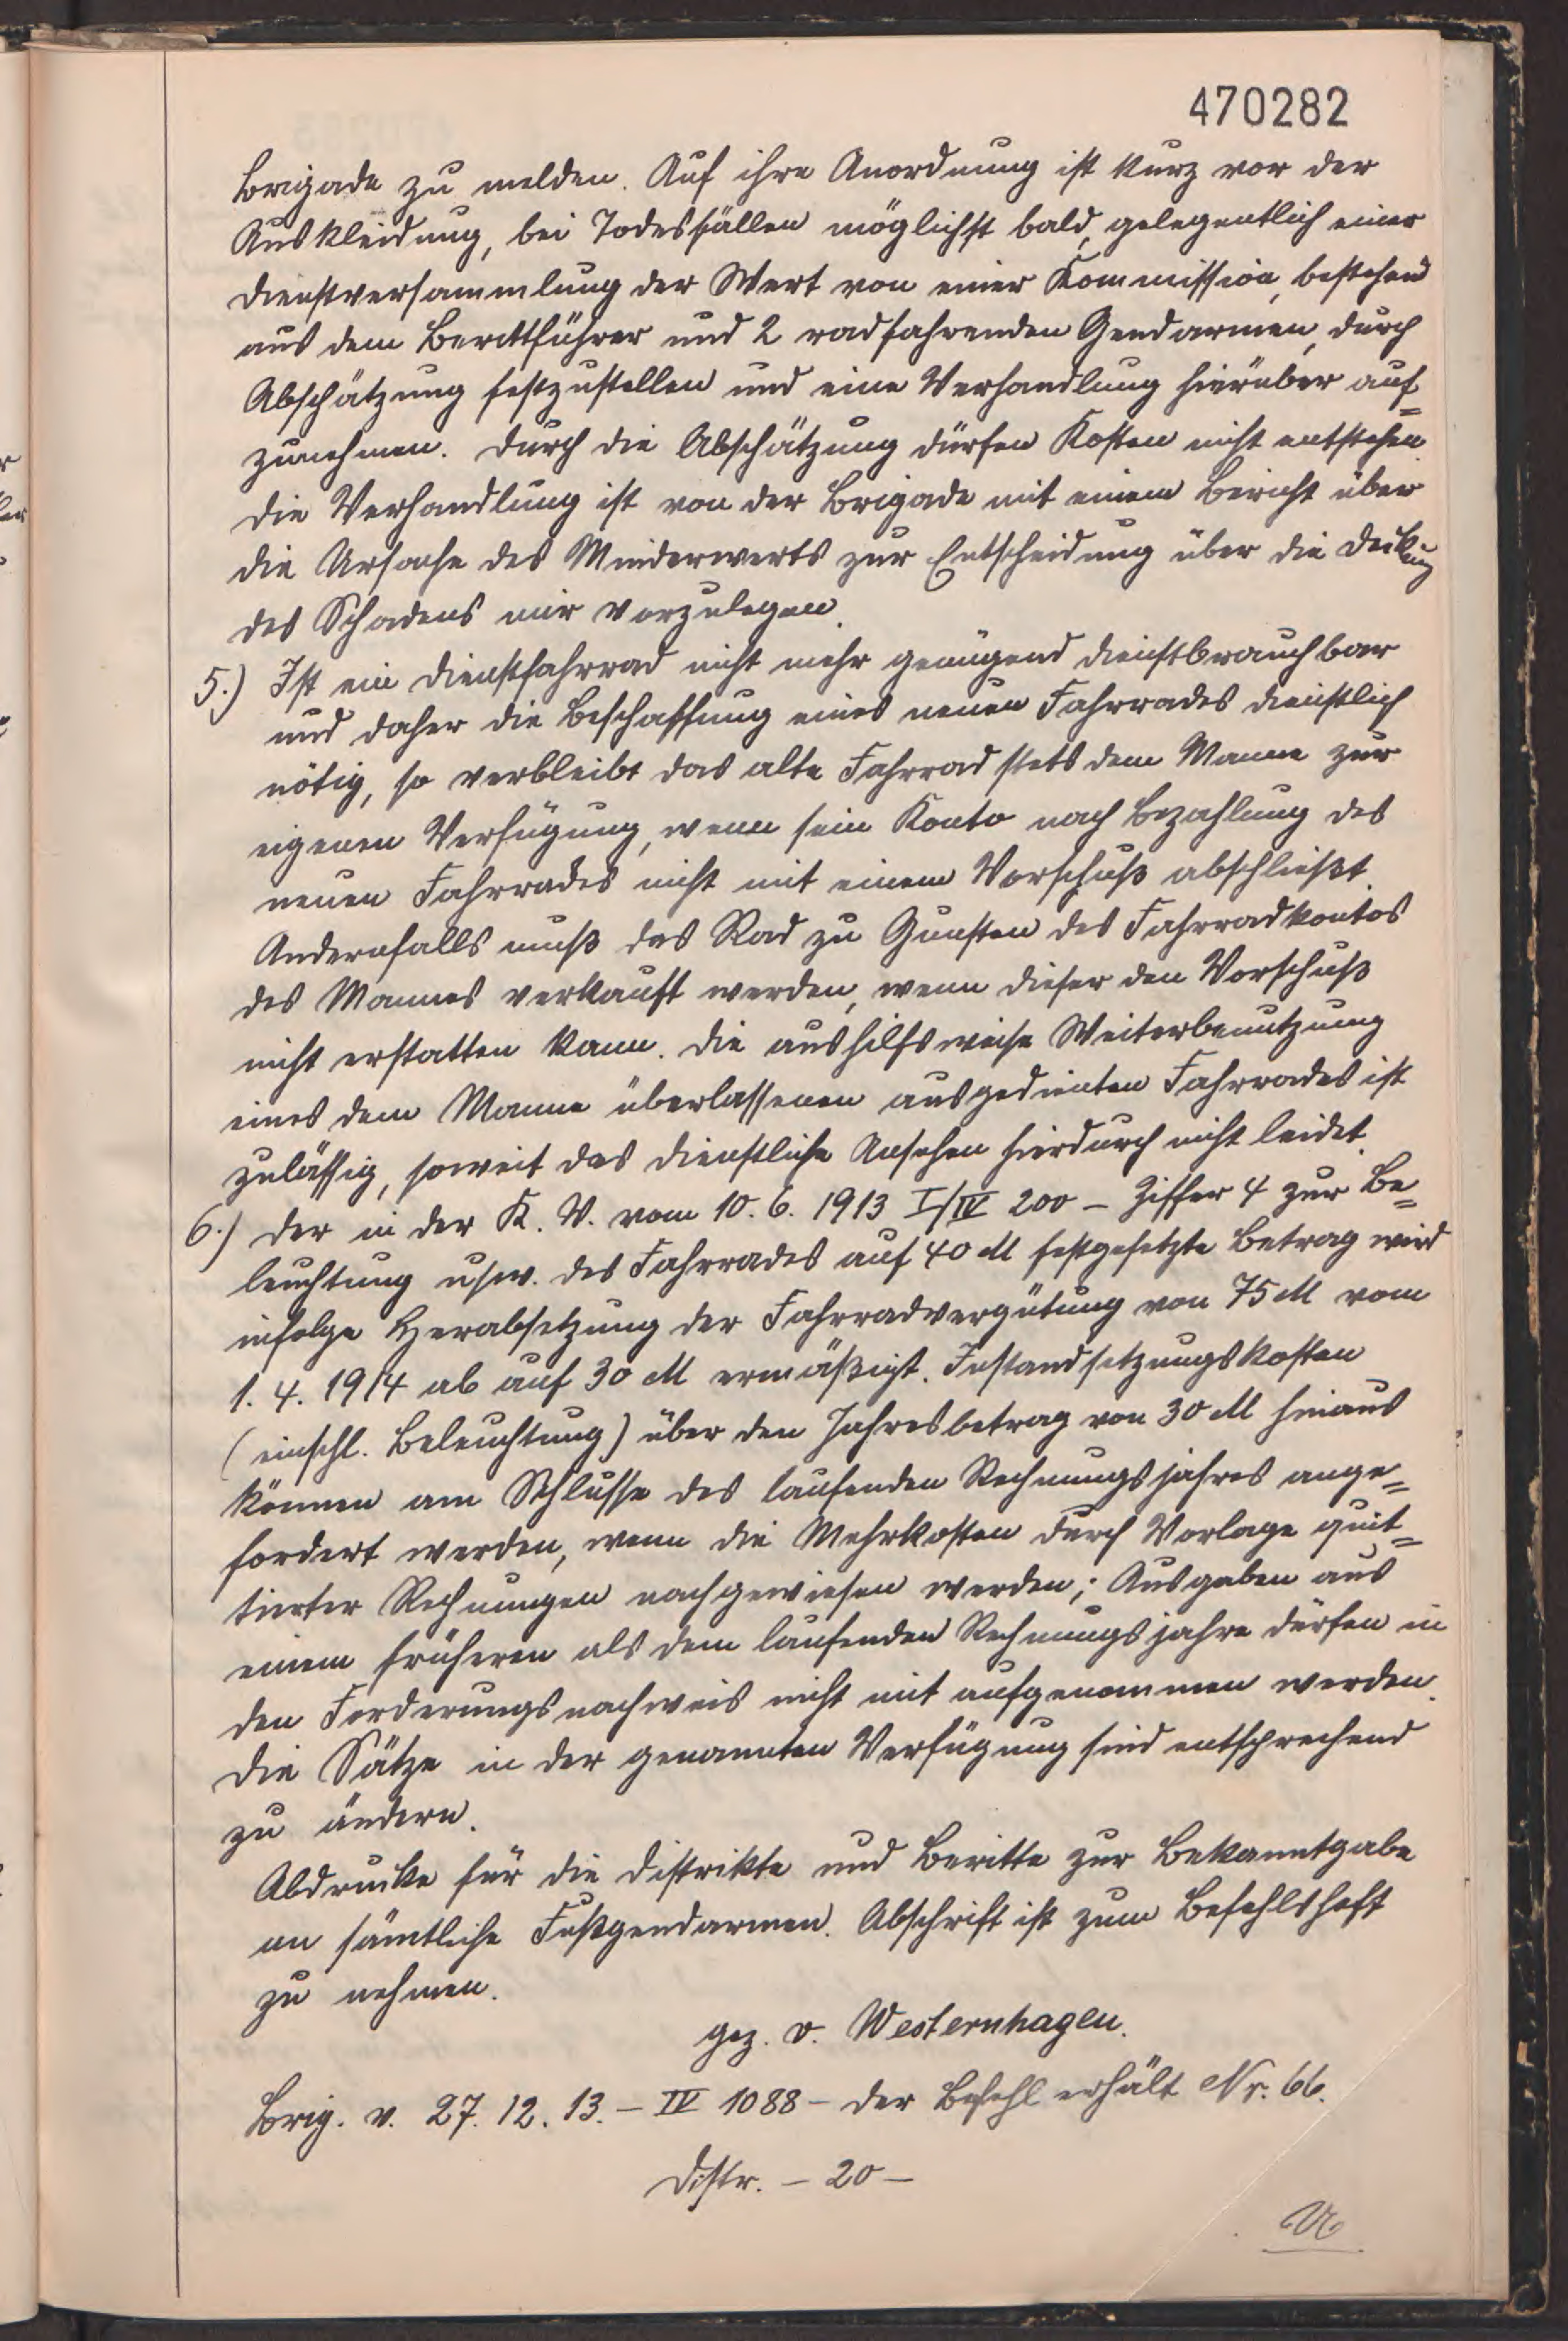 470282
Brigade zu melden. Auf ihre Anordnung ist kurz vor der
Auskleidung, bei Todesfällen möglichst bald, gelegentlich einer
Dienstversammlung der Wert von einer Kommission, bestehend
aus dem Berittführer und 2 radfahrenden Gendarmen, durch
Abschätzung festzustellen und eine Verhandlung hierüber auf=
zunehmen. Durch die Abschätzung dürfen Kosten nicht entstehen.
Die Verhandlung ist von der Brigade mit einem Bericht über
die Ursache des Minderwerts zur Entscheidung über die Deckung
des Schadens mir vorzulegen.
5.) Ist ein Dienstfahrrad nicht mehr genügend dienstbrauchbar
und daher die Beschaffung eines neuen Fahrrades dienstlich
nötig, so verbleibt das alte Fahrrad stets dem Manne zur
eigenen Verfügung, wenn sein Konto nach Bezahlung des
neuen Fahrrades nicht mit einem Vorschuß abschließt.
Andernfalls muß das Rad zu Gunsten des Fahrradkontos
des Mannes verkauft werden, wenn dieser den Vorschuß
nicht erstatten kann. Die aushilfsweise Weiterbenutzung
eines dem Manne überlassenen ausgedienten Fahrrades ist
zulässig, soweit das dienstliche Ansehen hierdurch nicht leidet.
6.) Der in der K. V. vom 10. 6. 1913 I/IV 200 – Ziffer 4 zur Be=
leuchtung usw. des Fahrrades auf 40 M festgesetzte Betrag wird
infolge Herabsetzung der Fahrradvergütung von 75 M vom
1. 4. 1914 ab auf 30 M ermäßigt. Instandsetzungskosten
(einschl. Beleuchtung) über den Jahresbetrag von 30 M hinaus
können am Schlusse des laufenden Rechnungsjahres ange=
fordert werden, wenn die Mehrkosten durch Vorlage quit=
tierter Rechnungen nachgewiesen werden; Ausgaben aus
einem früheren als dem laufenden Rechnungsjahre dürfen in
den Forderungsnachweis nicht mit aufgenommen werden.
Die Sätze in der genannten Verfügung sind entsprechend
zu ändern.
Abdrucke für die Distrikte und Beritte zur Bekanntgabe
an sämtliche Fußgendarmen. Abschrift ist zum Befehlsheft
zu nehmen.
gez. v. Westernhagen.
Brig. v. 27. 12. 13. – IV 1088 – Der Befehl erhält Nr. 66.
Distr. – 20 –